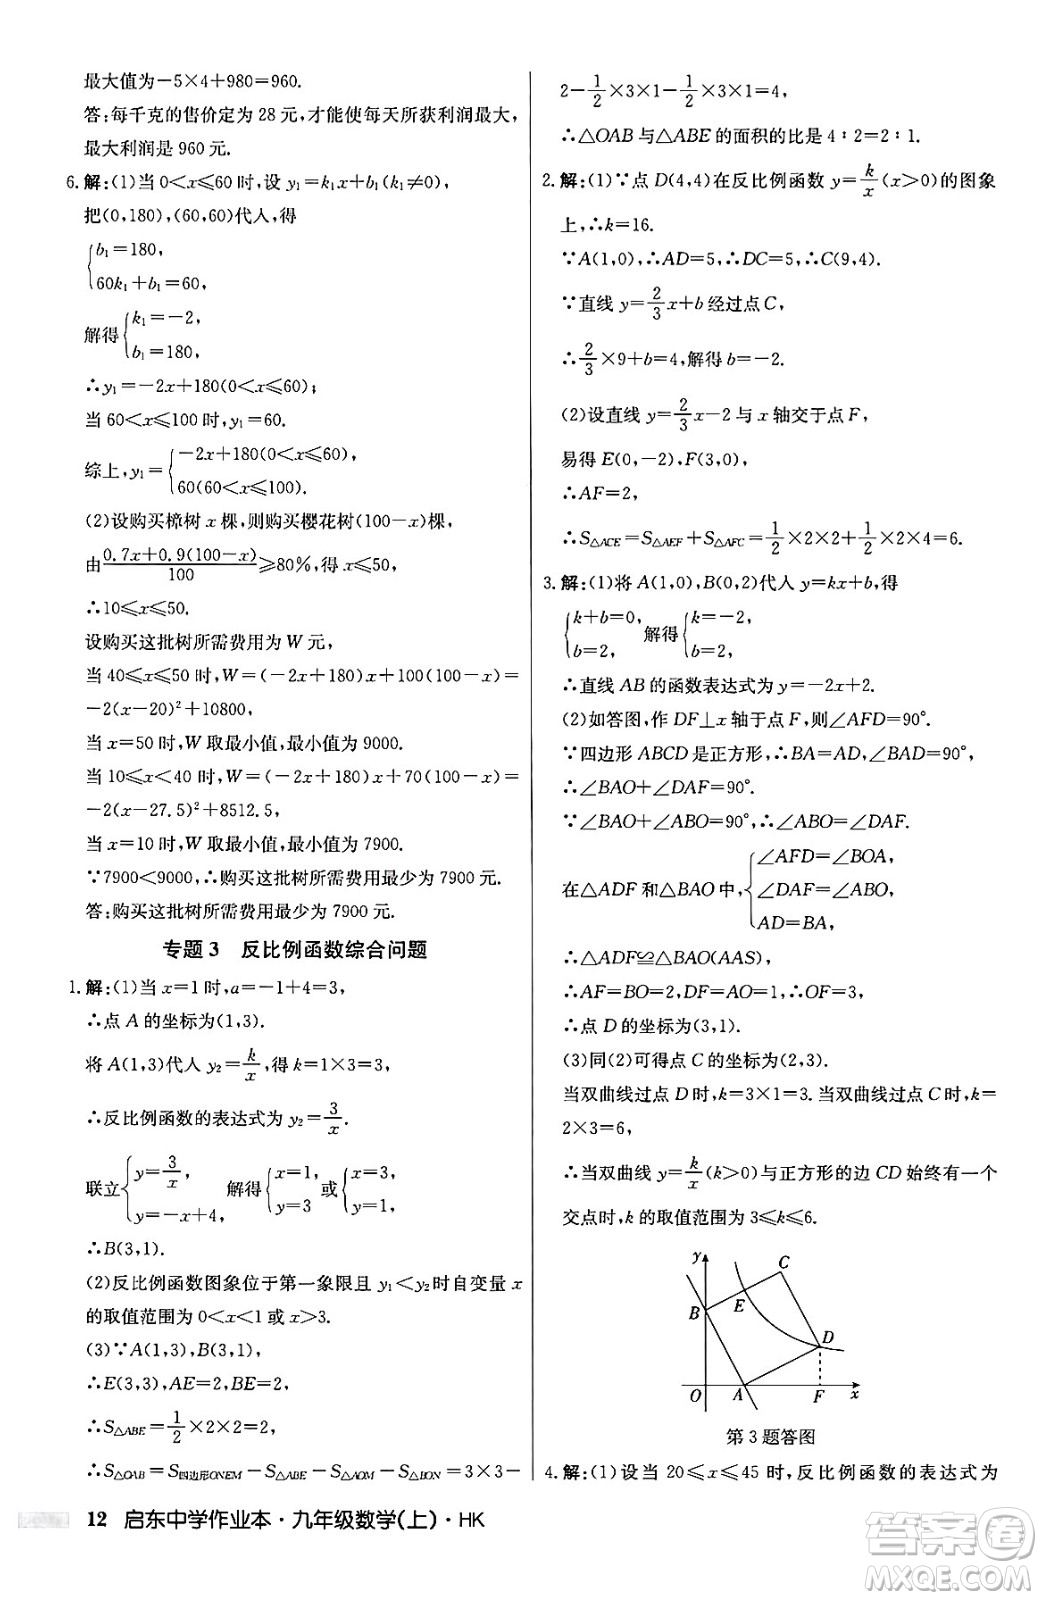 最大值为−5×4+980=960.
答:每千克的售价定为 28 元,才能使每天所获利润最大,
最大利润是 960 元.
6.解:(1)当 0<x⩽60 时,设 y₁=k₁x+b₁(k₁≠0),
把(0,180),(60,60)代人,得
{b₁=180,
60k₁+b₁=60,
解得{k₁=−2,
b₁=180,
∴y₁=−2x+180(0<x⩽60);
当 60<x⩽100 时,y₁=60.
综上,y₁={−2x+180(0<x⩽60),
60(60<x⩽100).
(2)设购买樟树 x 棵,则购买樱花树(100−x)棵,
由(0.7x+0.9(100−x))/100⩾80%,
∴10⩽x⩽50.
设购买这批树所需费用为 W 元,
当 40⩽x⩽50 时,W=(−2x+180)x+60(100−x)=
−2(x−20)²+10800,
当 x=50 时,W 取最小值,最小值为 9000.
当 10⩽x<40 时,W=(−2x+180)x+70(100−x)=
−2(x−27.5)²+8512.5,
当 x=10 时,W 取最小值,最小值为 7900.
∵7900<9000,∴购买这批树所需费用最少为 7900 元.
答:购买这批树所需费用最少为 7900 元.
专题 3 反比例函数综合问题
1.解:(1)当 x=1 时,a=−1+4=3,
∴点 A 的坐标为(1,3).
将 A(1,3)代人 y₂=k/x,得 k=1×3=3,
∴反比例函数的表达式为 y₂=3/x.
联立{y=3/x,
y=−x+4, 解得{x=1,
y=3 或{x=3,
y=1,
∴B(3,1).
(2)反比例函数图象位于第一象限且 y₁<y₂时自变量 x
的取值范围为 0<x<1 或 x>3.
(3)∵A(1,3),B(3,1),
∴E(3,3),AE=2,BE=2,
∴S△ABE=1/2×2×2=2,
∴S△OAB=S四边形ONEM−S△ABE−S△AOM−S△BON=3×3−
2−1/2×3×1−1/2×3×1=4,
∴△OAB 与△ABE 的面积的比是 4∶2=2∶1.
2.解:(1)∵点 D(4,4)在反比例函数 y=k/x(x>0)的图象
上,∴k=16.
∵A(1,0),∴AD=5,∴DC=5,∴C(9,4).
∵直线 y=2/3x+b 经过点 C,
∴2/3×9+b=4,解得 b=−2.
(2)设直线 y=2/3x−2 与 x 轴交于点 F,
易得 E(0,−2),F(3,0),
∴AF=2,
∴S△ACE=S△AEF+S△AFC=1/2×2×2+1/2×2×4=6.
3.解:(1)将 A(1,0),B(0,2)代人 y=kx+b,得
{k+b=0,
b=2, 解得{k=−2,
b=2,
∴直线 AB 的函数表达式为 y=−2x+2.
(2)如答图,作 DF⊥x 轴于点 F,则∠AFD=90°.
∵四边形 ABCD 是正方形,∴BA=AD,∠BAD=90°,
∴∠BAO+∠DAF=90°.
∵∠BAO+∠ABO=90°,∴∠ABO=∠DAF.
在△ADF 和△BAO 中,{∠AFD=∠BOA,
∠DAF=∠ABO,
AD=BA,
∴△ADF≌△BAO(AAS),
∴AF=BO=2,DF=AO=1,∴OF=3,
∴点 D 的坐标为(3,1).
(3)同(2)可得点 C 的坐标为(2,3).
当双曲线过点 D 时,k=3×1=3,当双曲线过点 C 时,k=
2×3=6,
∴当双曲线 y=k/x(k>0)与正方形的边 CD 始终有一个
交点时,k 的取值范围为 3⩽k⩽6.
y
C
E
B
D
O A F x
第 3 题答图
4.解:(1)设当 20⩽x⩽45 时,反比例函数的表达式为
12 启东中学作业本·九年级数学(上)·HK
答案圈
MXQE.COM